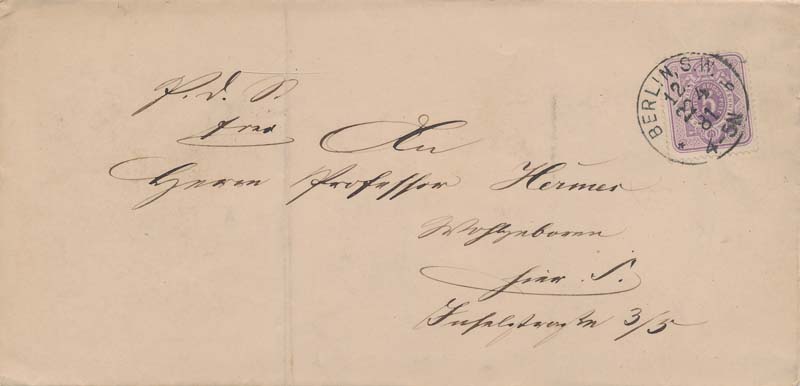 P. d. S.
frei
An
Herrn Professor Hermes
Wohlgeboren
hier S.
Inselstraße 3/5
BERLIN, S.W.
12
81
4-5N
5